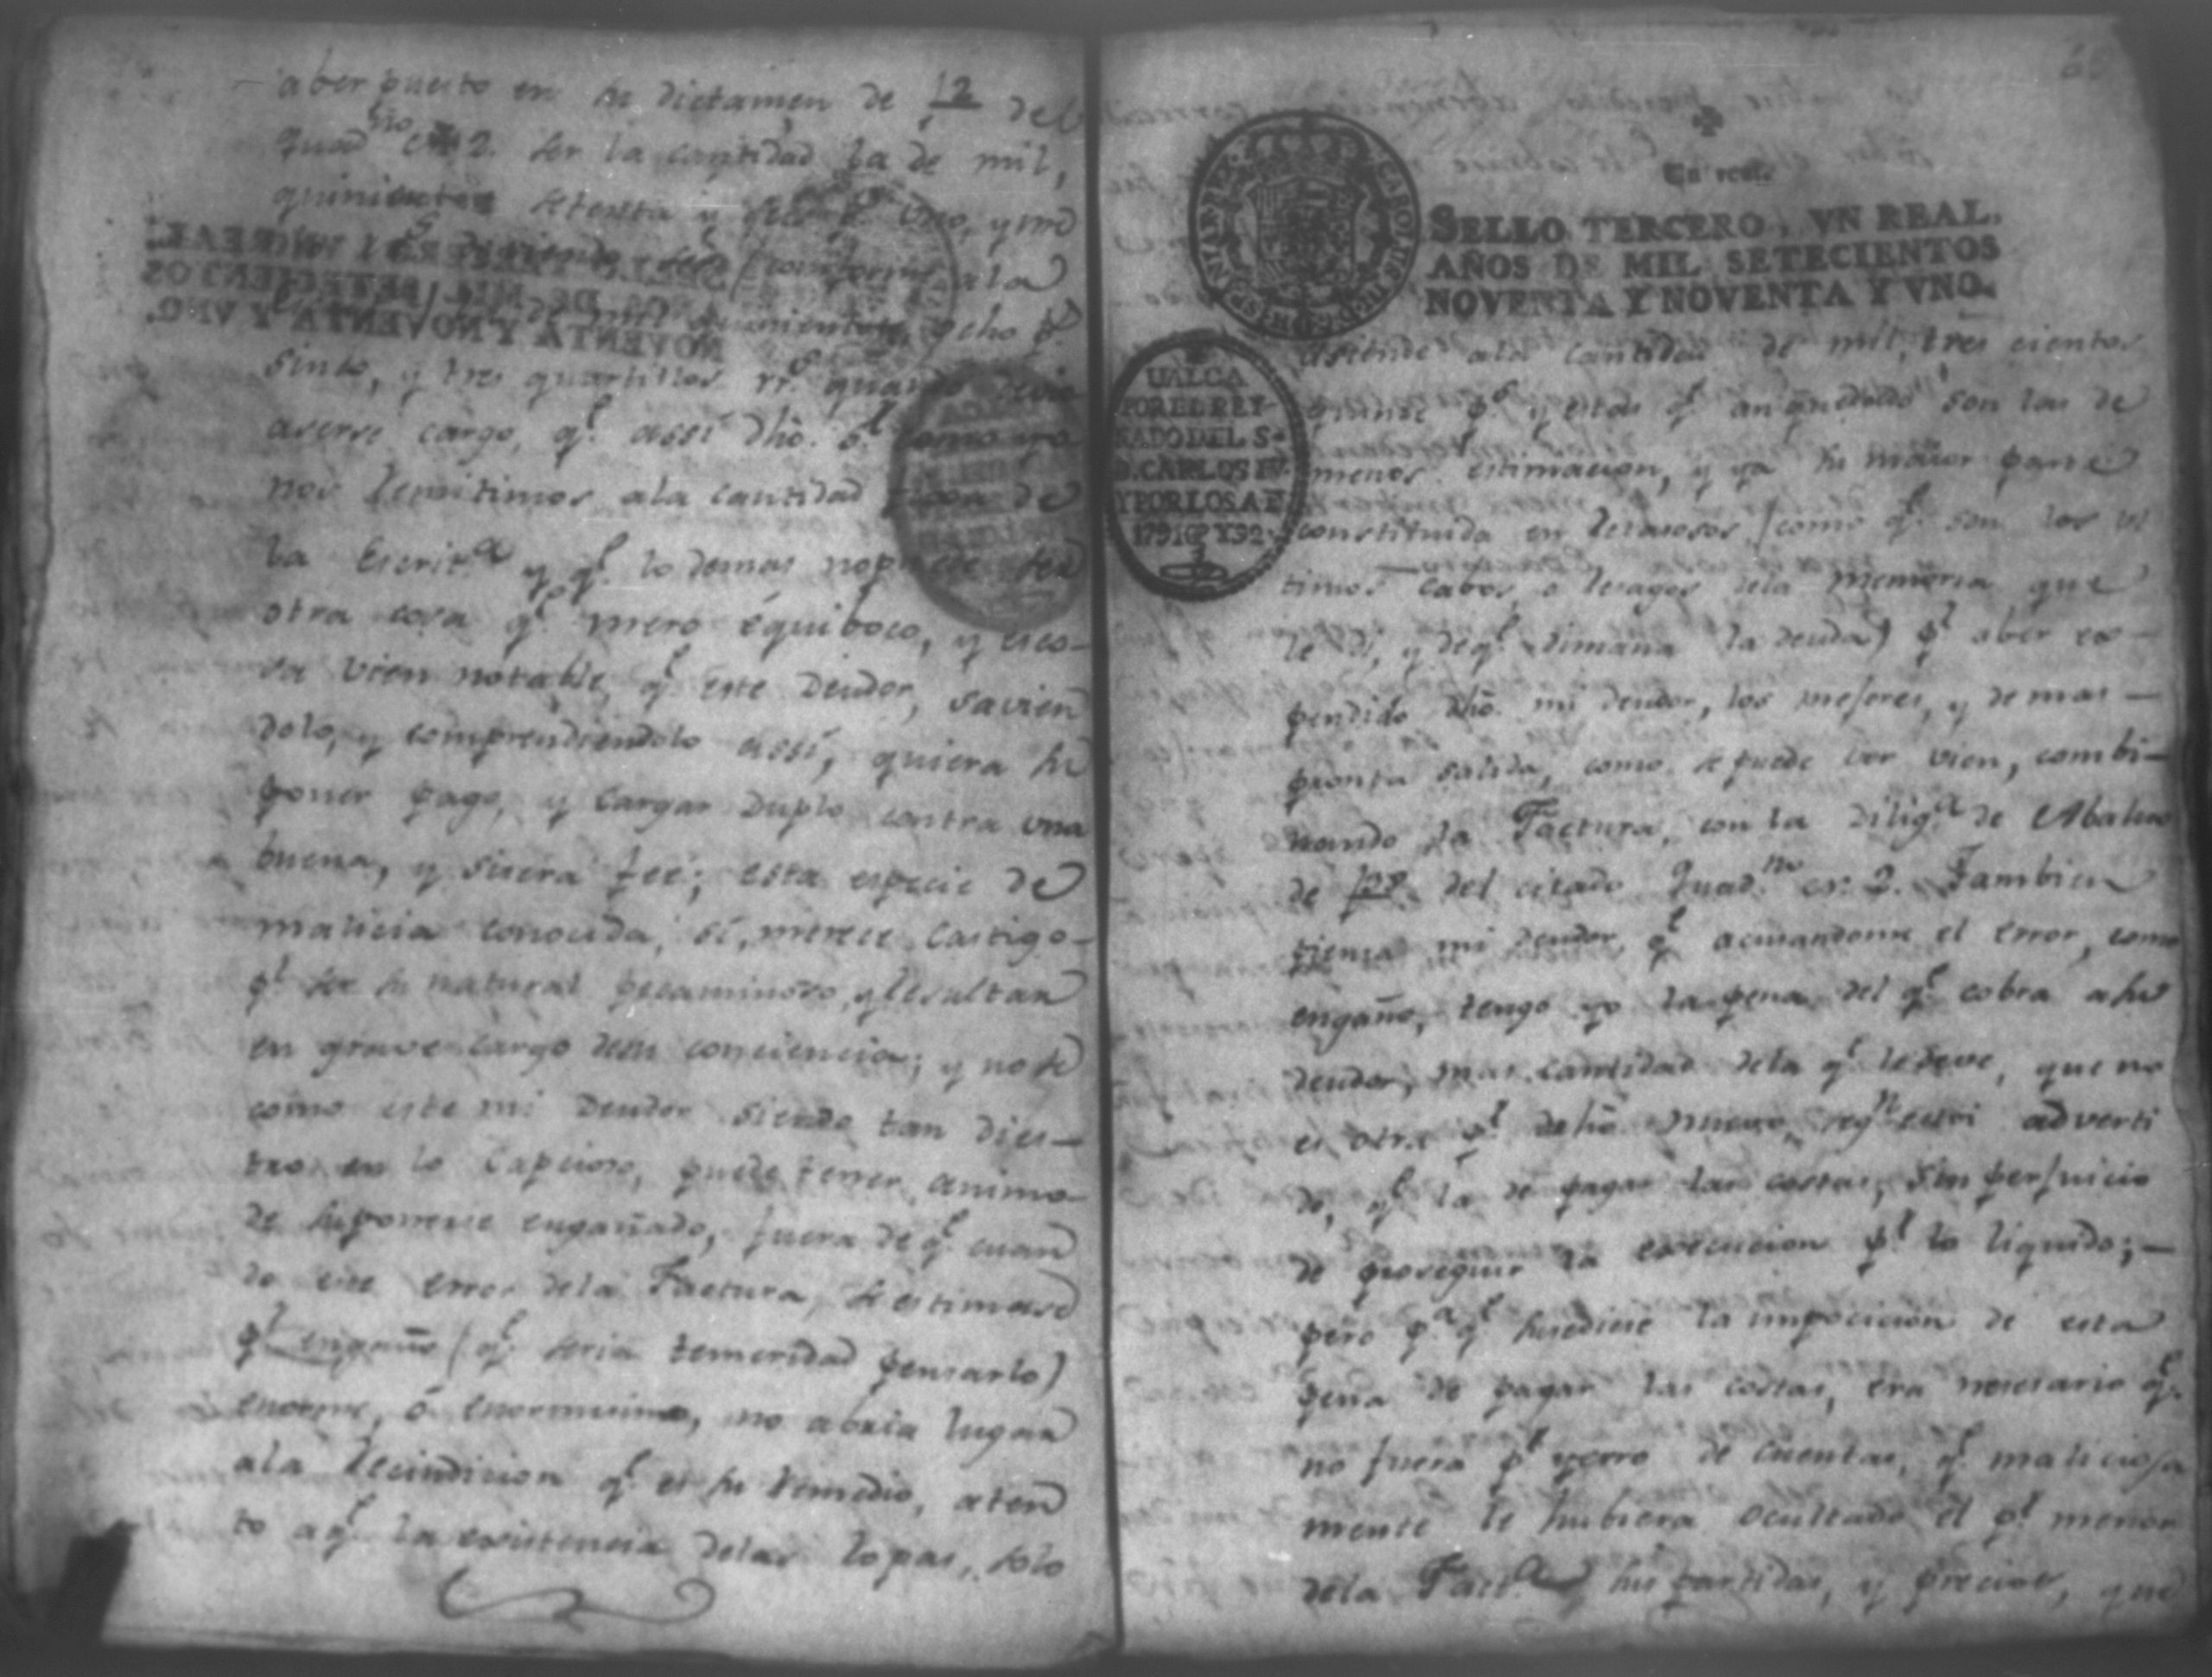 aber puesto en su dictamen de f 12 del
quad.no C. 2. ser la cantidad la de mil,
quinientos setenta y seis p.s uno, y md
r.s deviendo ser (conforme ala
de mil quinientos, y ocho p.s
sinco, y tres quartillos rr.s quando devia
aserse cargo, q.e assi dho. S.r como yo
nos remitimos ala cantidad fixa de
la Escrit.a y q.e lo demas nopuede ser
otra cosa q.e mero équiboco, y es co-
sa vien notable q.e este Deudor, savien
dolo, y comprendiendolo assi, quiera su
poner pago, y cargar Duplo contra una
buena, y sincera feé; esta especie de
malicia conocida, si, merece castigo-
p.r ser su natural pecaminoso, y resultan
en grave cargo desu conciencia; y no se
como este mi Deudor siendo tan dies-
tro en lo Capcioso, puede tener animo
de suponerse engañado, fuera de q.e cuan
do este error dela Factura, se estimase
p.r engaño (q.e seria temeridad pensarlo)
enorme, ó enormisimo, no abria lugar
ala Recindicion q.e es su remedio, aten
to aq.e la existencia delas ropas, solo
60
Un real.
SELLO TERCERO, VN REAL,
AÑOS DE MIL SETECIENTOS
NOVENTA Y NOVENTA Y VNO.
CAROLUS IV D G HISPANIAR REX
UALGA
POR EL REY-
NADO DEL S.
D. CARLOS IV.
Y POR LOS AE
1791 Y 92.
asiende ala cantidad de mil, tres cientos
p.s y estas q.e an quedado son las de
menos estimacion, y ya su maior parte
constituida en retasos (como q.e son los ul
timos cabos, o resagos dela memoria que
le di, y deq.e dimana la deuda) p.r aber ex-
pendido dho. mi deudor, los mejores, y de mas-
pronta salida, como se puede ver vien, combi-
nando la Factura, con la dilig.a de Abaluo
de f 28 del citado Quad.no C. 2. Tambien
piensa mi deudor, q.e acusandome el error, como
engaño, tengo yo la pena del q.e cobra asu
deudor, mas cantidad dela q.e ledeve, que no
es otra p.r dro. nuevo, seg.n estoi adverti
do, q.e la de pagar las costas, sin perjuicio
de proseguir la execucion p.r lo liquido;-
pero p.a q.e susediese la imposicion de esta
pena de pagar las costas, era nesesario q.e
no fuera p.r yerro de cuentas, q.e maliciosa
mente le hubiera ocultado el p.r menor
dela Fact.a sus partidas, y precios, que